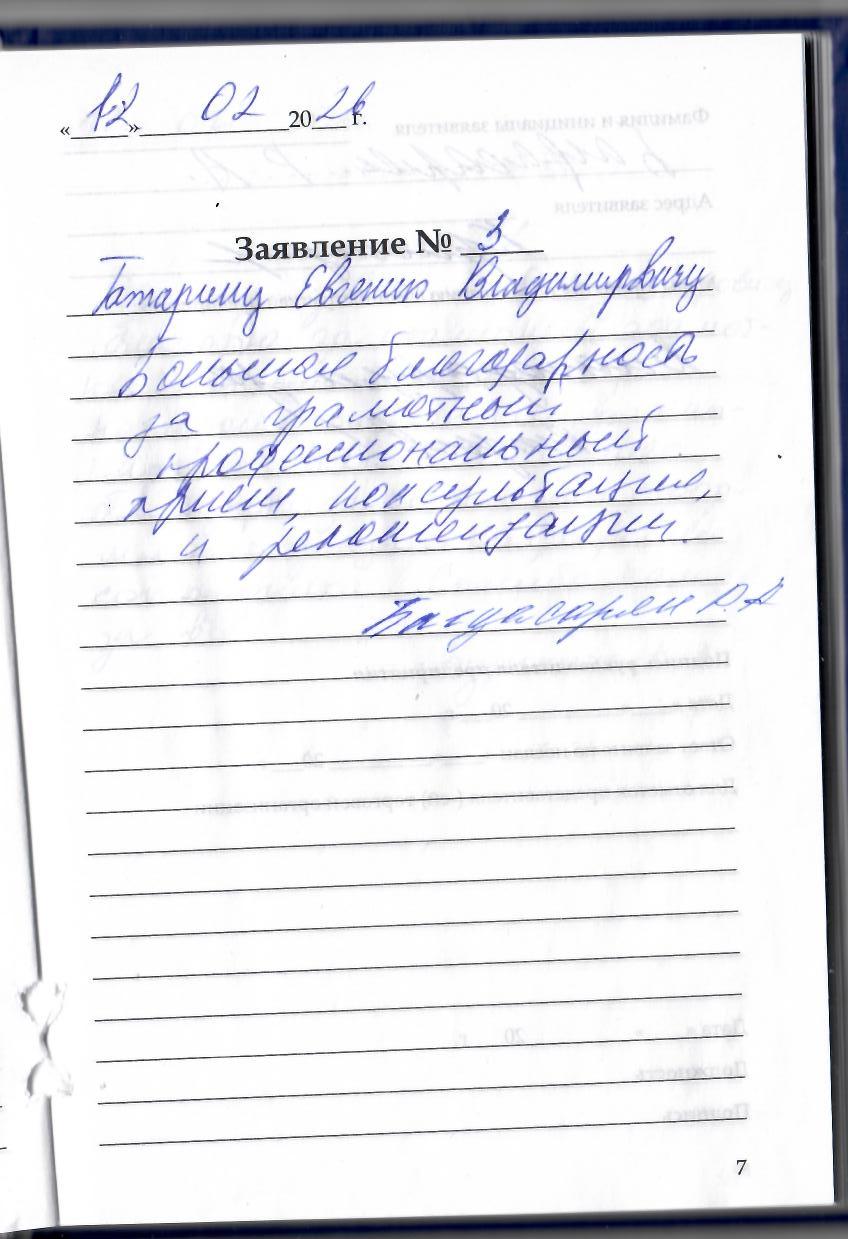 «12» 02 2026 г.
Заявление № 3
Татарину Евгению Владимировичу
Большая благодарность
за грамотный
профессиональный
прием, консультация,
и рекомендации.
Багдасарян Р.А
7